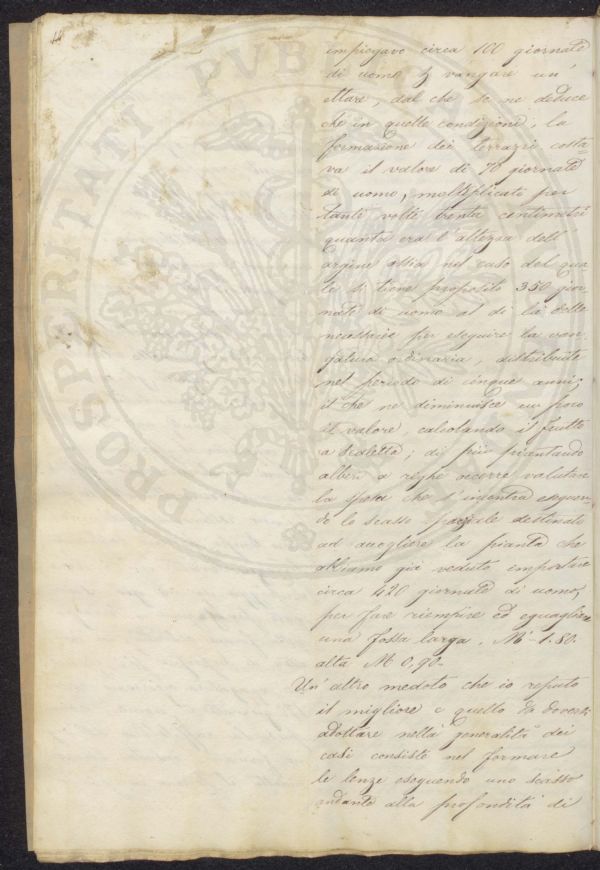 impiegavo circa 100 giornate
di uomo per vangare un'
ettare, dal che se ne deduce
che in quelle condizioni, la
formazione dei terrazzi costa-
va il valore di 70 giornate
di uomo, moltiplicate per
tante volte trenta centimetri
quanta era l'altezza dell'
argine ossia nel caso del qua-
le si tiene proposito 350 gior-
nate di uomo al di là delle
necessarie per eseguire la van-
gatura ordinaria, distribuite
nel periodo di cinque anni;
il che ne diminuisce un poco
il valore, calcolando il frutto
a scaletta; di più piantando
alberi a righe occorre valutare
la spesa che s'incontra eseguen-
do lo scasso parziale destinato
ad accogliere la pianta che
abbiamo già veduto importare
circa 420 giornate di uomo,
per fare riempire ed eguagliare
una fossa larga, M. 1.80.
alta M 0,90.
Un' altro metodo che io reputo
il migliore e quello da doversi
adottare nella generalità dei
casi consiste nel formare
le lenze eseguendo uno scasso
andante alla profondità di
PROSPERITATI PUBLI